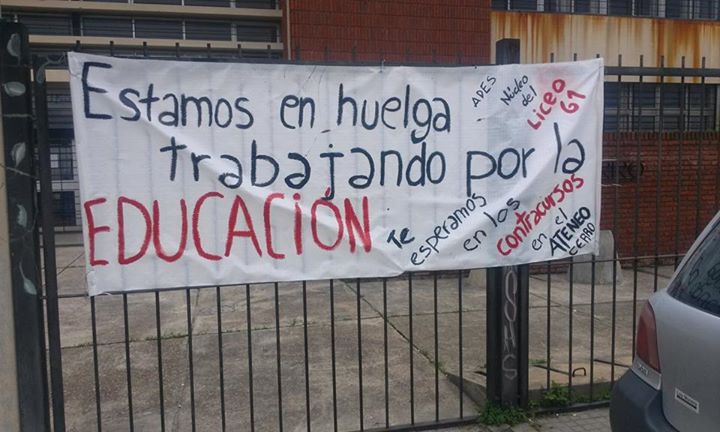 Estamos en huelga
trabajando por la
EDUCACIÓN
ADES
Núcleo
del
Liceo
61
Te
esperamos
en los
contracursos
en el
ATENEO
CERRO